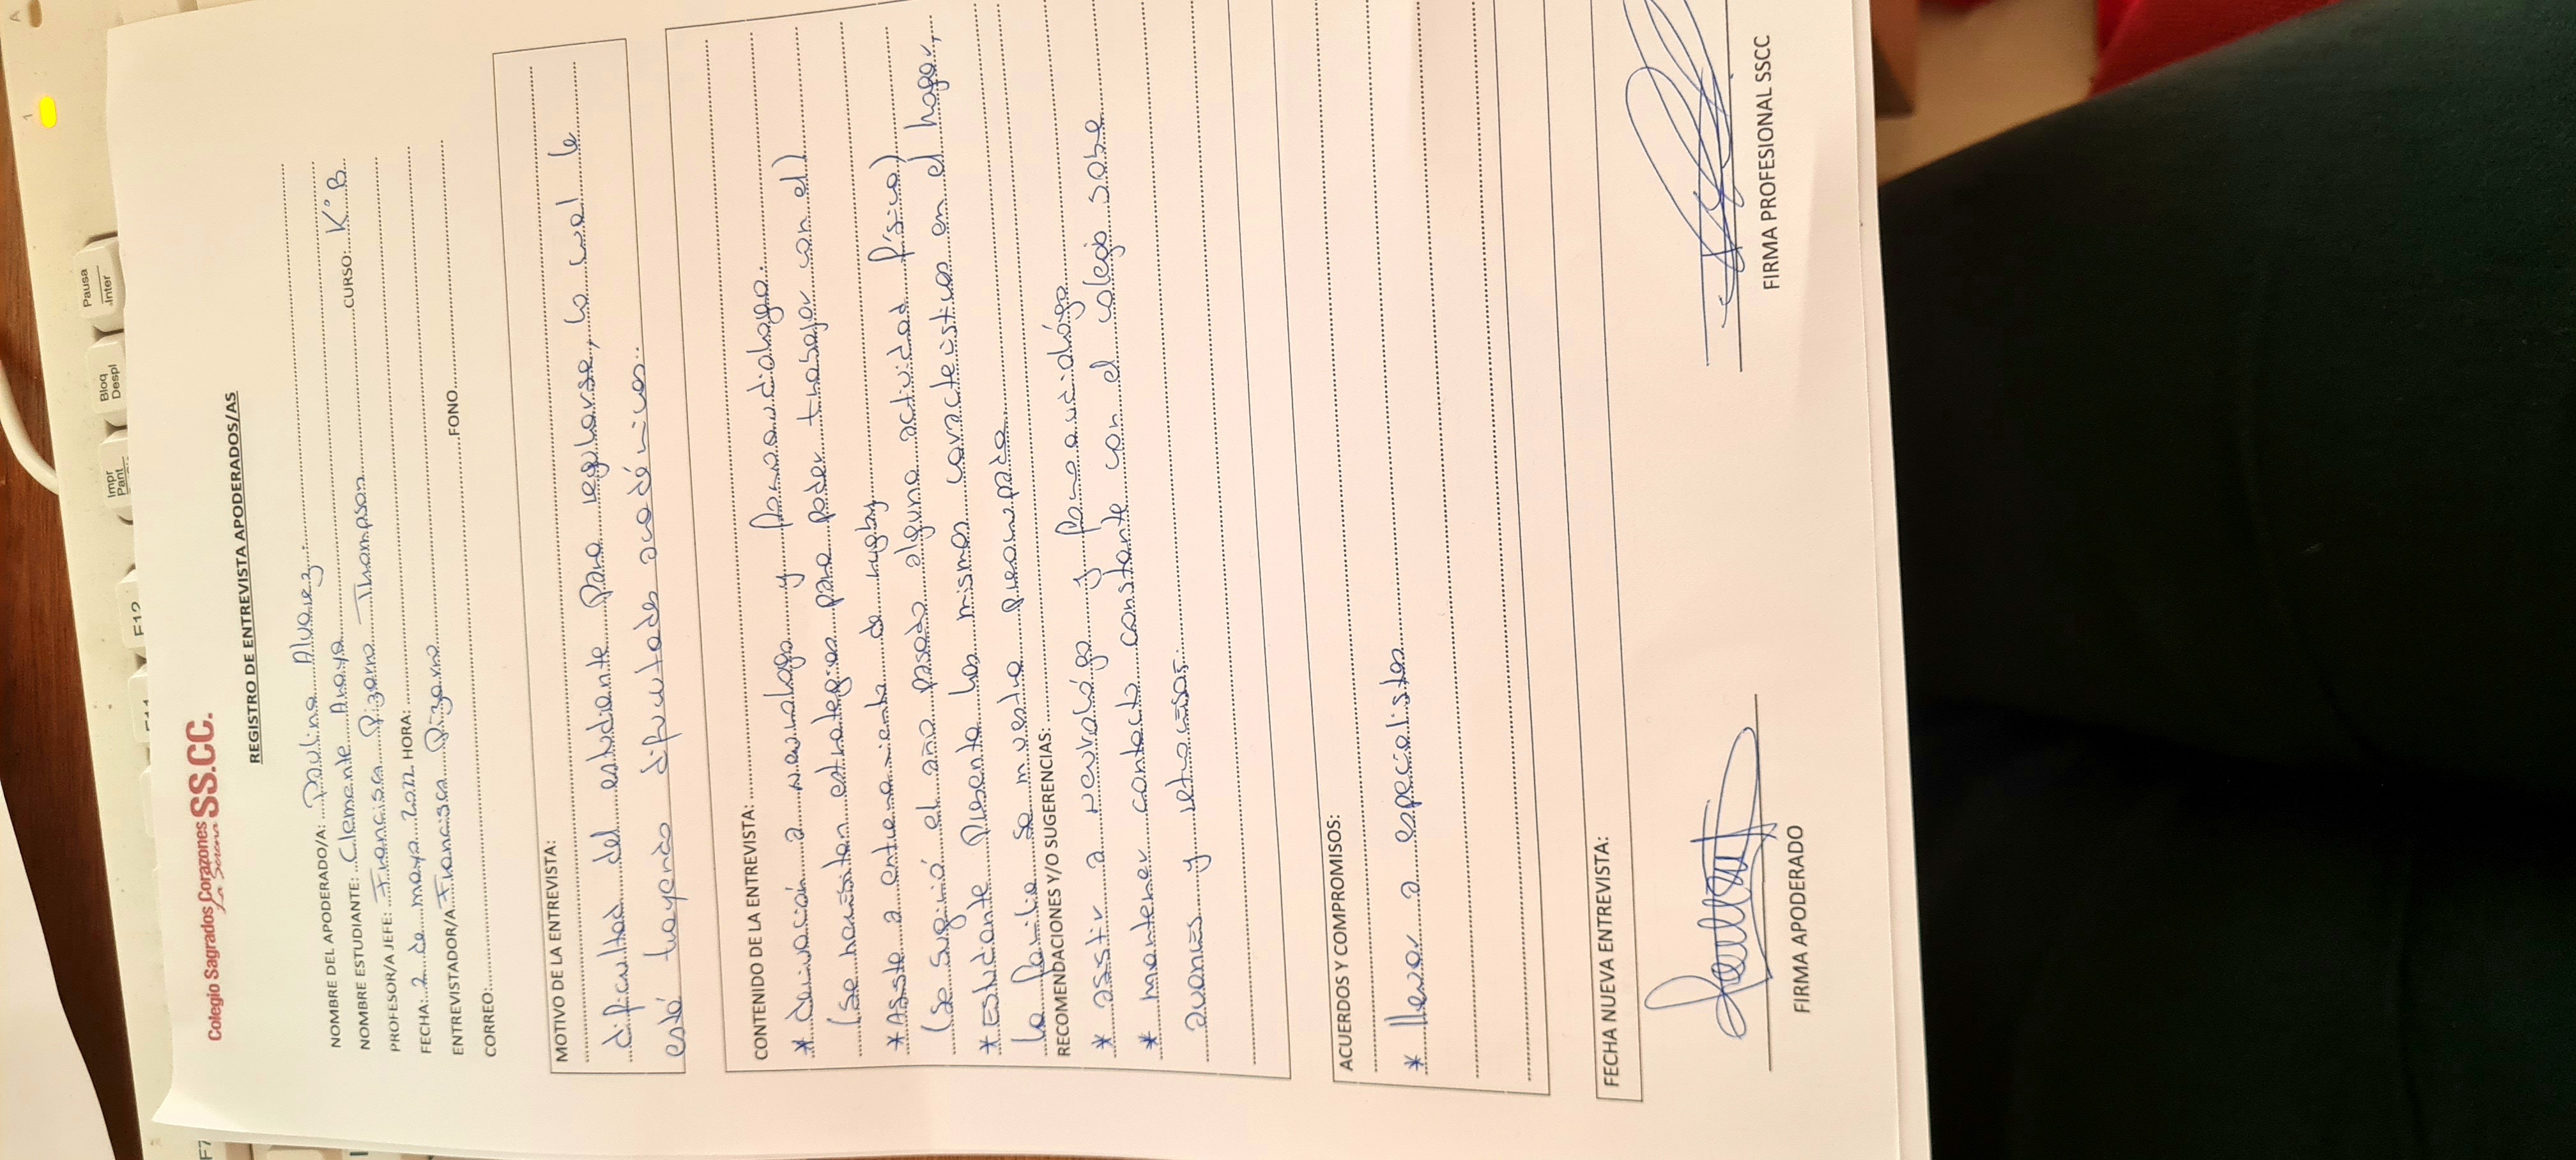 Colegio Sagrados Corazones SS.CC.
La Serena
REGISTRO DE ENTREVISTA APODERADOS/AS
NOMBRE DEL APODERADO/A: Paulina Alvarez
NOMBRE ESTUDIANTE: Clemente Araya CURSO: K° B
PROFESOR/A JEFE: Francisca Pizarro Thompson
FECHA: 2 de mayo 2022 HORA:
ENTREVISTADOR/A Francisca Pizarro
CORREO: FONO
MOTIVO DE LA ENTREVISTA:
dificultad del estudiante para regularse, lo cual le
está trayendo dificultades académicas.
CONTENIDO DE LA ENTREVISTA:
* derivación a neurologo y fonoaudiologo.
(se necesitan estrategias para poder trabajar con el)
* Asiste a entrenamiento de rugby
(se sugirió el año pasado alguna actividad física)
* Estudiante presenta las mismas características en el hogar,
la familia se muestra preocupada
RECOMENDACIONES Y/O SUGERENCIAS:
* asistir a neurológo y fonoaudiológo
* mantener contacto constante con el colegio sobre
avances y retrocesos.
ACUERDOS Y COMPROMISOS:
* llevar a especialistas
FECHA NUEVA ENTREVISTA:
FIRMA APODERADO
FIRMA PROFESIONAL SSCC
Impr
Pant
Bloq
Despl
Pausa
Inter
F7
F11
F12
1
A